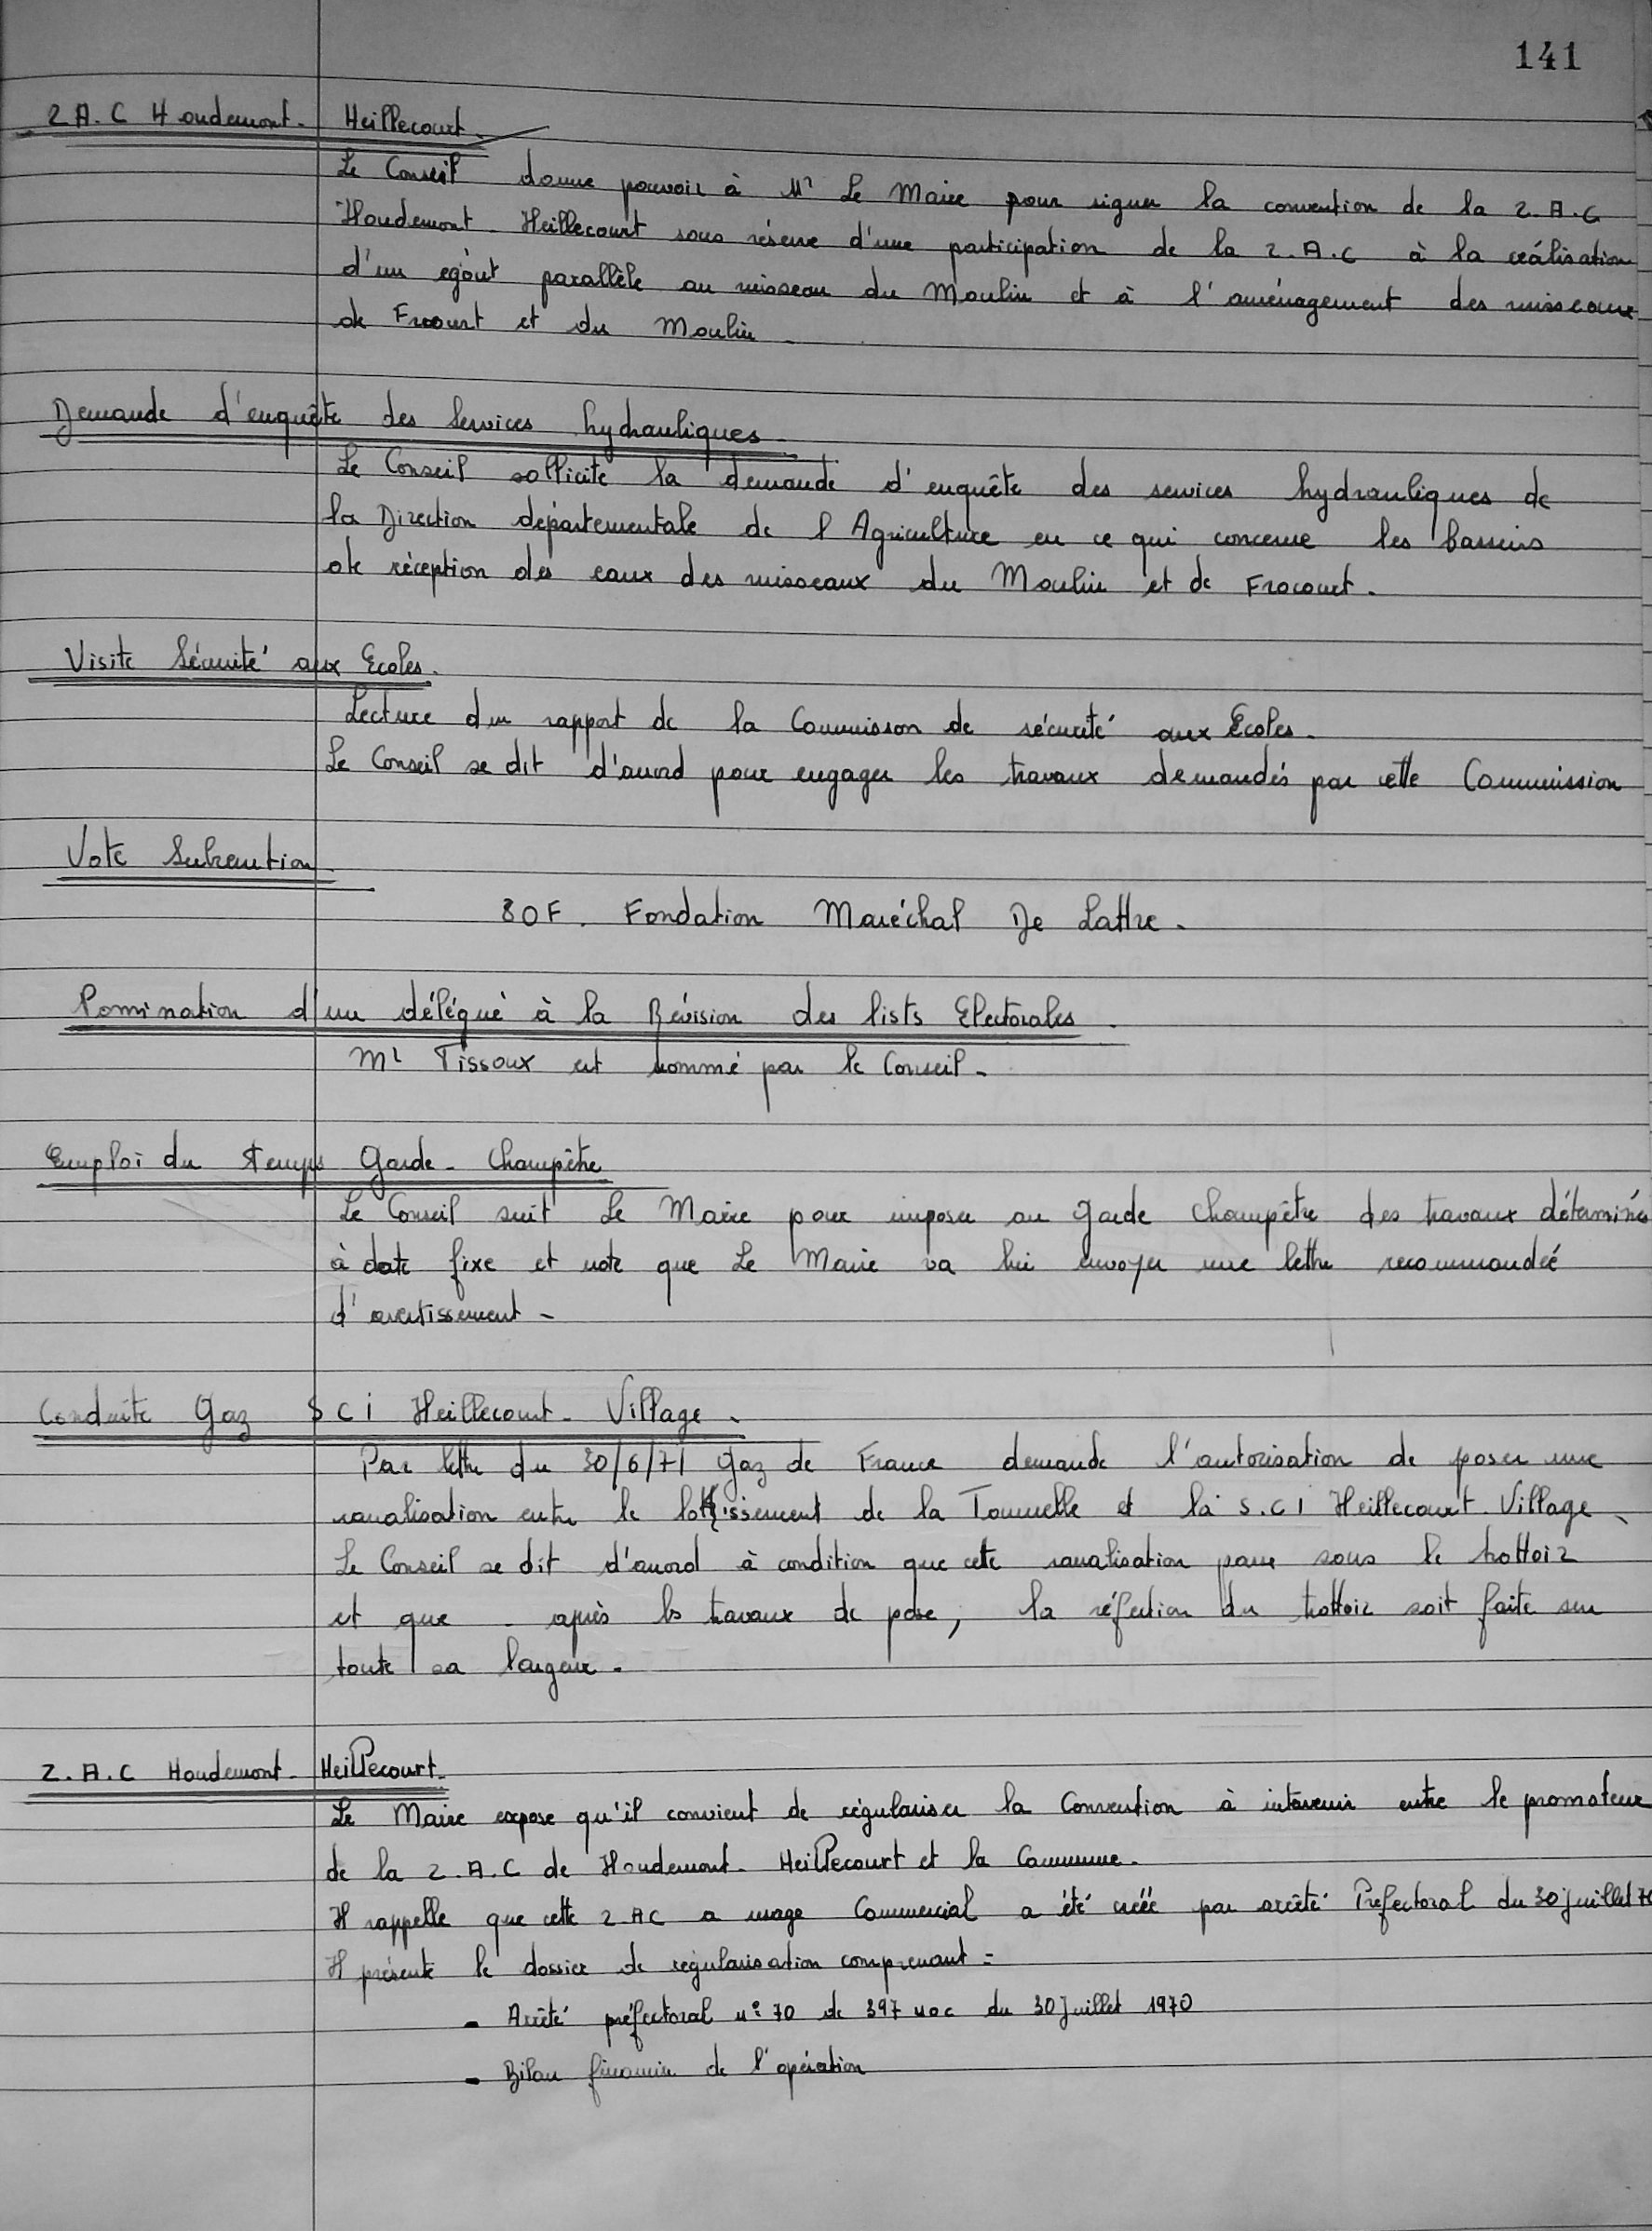 141
Z.A.C Houdemont - Heillecourt.
Le Conseil donne pouvoir à Mr Le Maire pour signer la convention de la Z.A.C
Houdemont - Heillecourt sous réserve d'une participation de la Z.A.C à la réalisation
d'un egoût parallèle au ruisseau du Moulin et à l'aménagement des ruisseaux
de Frocourt et du Moulin.
Demande d'enquête des Services hydrauliques.
Le Conseil sollicite la demande d'enquête des services hydrauliques de
la Direction départementale de l Agriculture en ce qui concerne les bassins
de réception des eaux des ruisseaux du Moulin et de Frocourt.
Visite Sécurité aux Ecoles.
Lecture du rapport de la Commisson de sécurité aux Ecoles.
Le Conseil se dit d'accord pour engager les travaux demandés par cette Commission
Vote Subvention
80F. Fondation Maréchal De Lattre.
Nomination d'un délégué à la Révision des lists Electorales.
Mr Tissoux est nommé par le Conseil.
Emploi du temps Garde-Champêtre
Le Conseil suit Le Maire pour imposer au garde champêtre des travaux déterminés
à date fixe et note que Le Maire va lui envoyer une lettre recommandée
d'avertissement -
Conduite Gaz SCI Heillecourt - Village.
Par lettre du 30/6/71 Gaz de France demande l'autorisation de poser une
canalisation entre le lotissement de la Tournelle et la S.C.I Heillecourt-Village.
Le Conseil se dit d'accord à condition que cette canalisation passe sous le trottoir
et que - après les travaux de pose, la réfection du trottoir soit faite sur
toute sa largeur.
Z.A.C Houdemont - Heillecourt.
Le Maire expose qu'il convient de régulariser la Convention à intervenir entre le promoteur
de la Z.A.C de Houdemont - Heillecourt et la Commune.
Il rappelle que cette Z.AC a usage Commercial a été créée par arrêté Préfectoral du 30 juillet 70
Il présente le dossier de régularisation comprenant :
- Arrêté préfectoral n° 70 de 397 du 30 Juillet 1970
- Bilan financier de l'opération